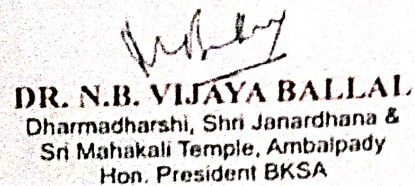 DR. N.B. VIJAYA BALLAL
Dharmadharshi, Shri Janardhana &
Sri Mahakali Temple, Ambalpady
Hon. President BKSA